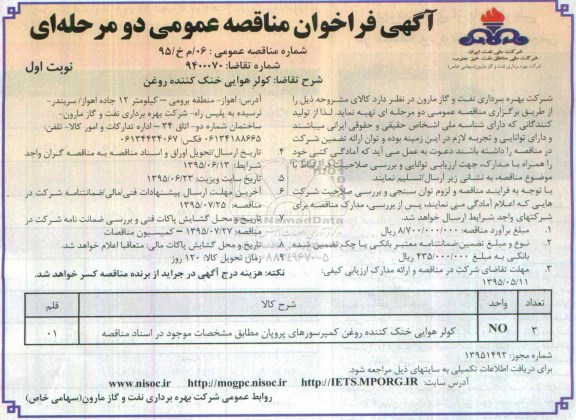 آگهی فراخوان مناقصه عمومی دو مرحله‌ای
شرکت ملی نفت ایران
شرکت ملی مناطق نفت خیز جنوب
شرکت بهره برداری نفت و گاز مارون (سهامی خاص)
شماره مناقصه عمومی : ۰۶/م خ/۹۵
شماره تقاضا: ۹۴۰۰۰۷۰
نوبت اول
شرح تقاضا: کولر هوایی خنک کننده روغن
شرکت بهره برداری نفت و گاز مارون در نظر دارد کالای مشروحه ذیل را
از طریق برگزاری مناقصه عمومی دو مرحله ای تهیه نماید. لذا از تولید
کنندگانی که دارای شناسه ملی اشخاص حقیقی و حقوقی ایرانی میباشند
و دارای توانایی و تجربه لازم در این زمینه بوده و توان ارائه تضمین شرکت
در مناقصه را داشته باشند دعوت به عمل می آید که آمادگی کتبی خود
را همراه با مدارک، جهت ارزیابی توانایی و بررسی صلاحیت مرتبط با
موضوع مناقصه، به نشانی زیر ارسال/تسلیم نمایند.
با توجه به فرایند مناقصه و لزوم توان سنجی و بررسی صلاحیت شرکت
هایی که اعلام آمادگی می نمایند، پس از بررسی، مدارک مناقصه برای
شرکتهای واجد شرایط ارسال خواهد شد.
۱. مبلغ برآورد مناقصه: ۸/۷۰۰/۰۰۰/۰۰۰ ریال
۲. نوع و مبلغ تضمین:ضمانتنامه معتبر بانکی یا چک تضمین شده
بانکی به مبلغ ۴۳۵/۰۰۰/۰۰۰ ریال
۳. مهلت تقاضای شرکت در مناقصه و ارائه مدارک ارزیابی کیفی:
۱۳۹۵/۰۵/۱۱
آدرس: اهواز- منطقه برومی – کیلومتر ۱۲ جاده اهواز/ سربندر-
نرسیده به پلیس راه- شرکت بهره برداری نفت و گاز مارون-
ساختمان شماره دو- اتاق ۳۴ –اداره تدارکات و امور کالا- تلفن:
۰۶۱۳۴۴۳۴۰۶۷ فکس: ۰۶۱۳۴۱۸۸۶۶۵
۴. تاریخ ارسال/تحویل اوراق و اسناد مناقصه به مناقصه گران واجد
شرایط: ۱۳۹۵/۰۶/۱۳
۵. تاریخ سایت ویزیت: ۱۳۹۵/۰۶/۲۳
۶. آخرین مهلت ارسال پیشنهادات فنی/مالی/ضمانتنامه شرکت در
مناقصه: ۱۳۹۵/۰۷/۲۵
۷. تاریخ و محل گشایش پاکات فنی و بررسی ضمانت نامه شرکت در
مناقصه: ۱۳۹۵/۰۷/۲۷ – کمیسیون مناقصات
۸. تاریخ و محل گشایش پاکات مالی: متعاقبا اعلام خواهد شد.
۹. زمان تحویل کالا: ۱۲۰ روز
نکته: هزینه درج آگهی در جراید از برنده مناقصه کسر خواهد شد.
تعداد واحد شرح کالا قلم
۲ NO کولر هوایی خنک کننده روغن کمپرسورهای پروپان مطابق مشخصات موجود در اسناد مناقصه ۰۱
شماره مجوز: ۱۳۹۵۱۴۹۲
برای دریافت اطلاعات تکمیلی به سایتهای ذیل مراجعه شود.
آدرس سایت: http://IETS.MPORG.IR http://mogpc.nisoc.ir www.nisoc.ir
روابط عمومی شرکت بهره برداری نفت و گاز مارون(سهامی خاص)